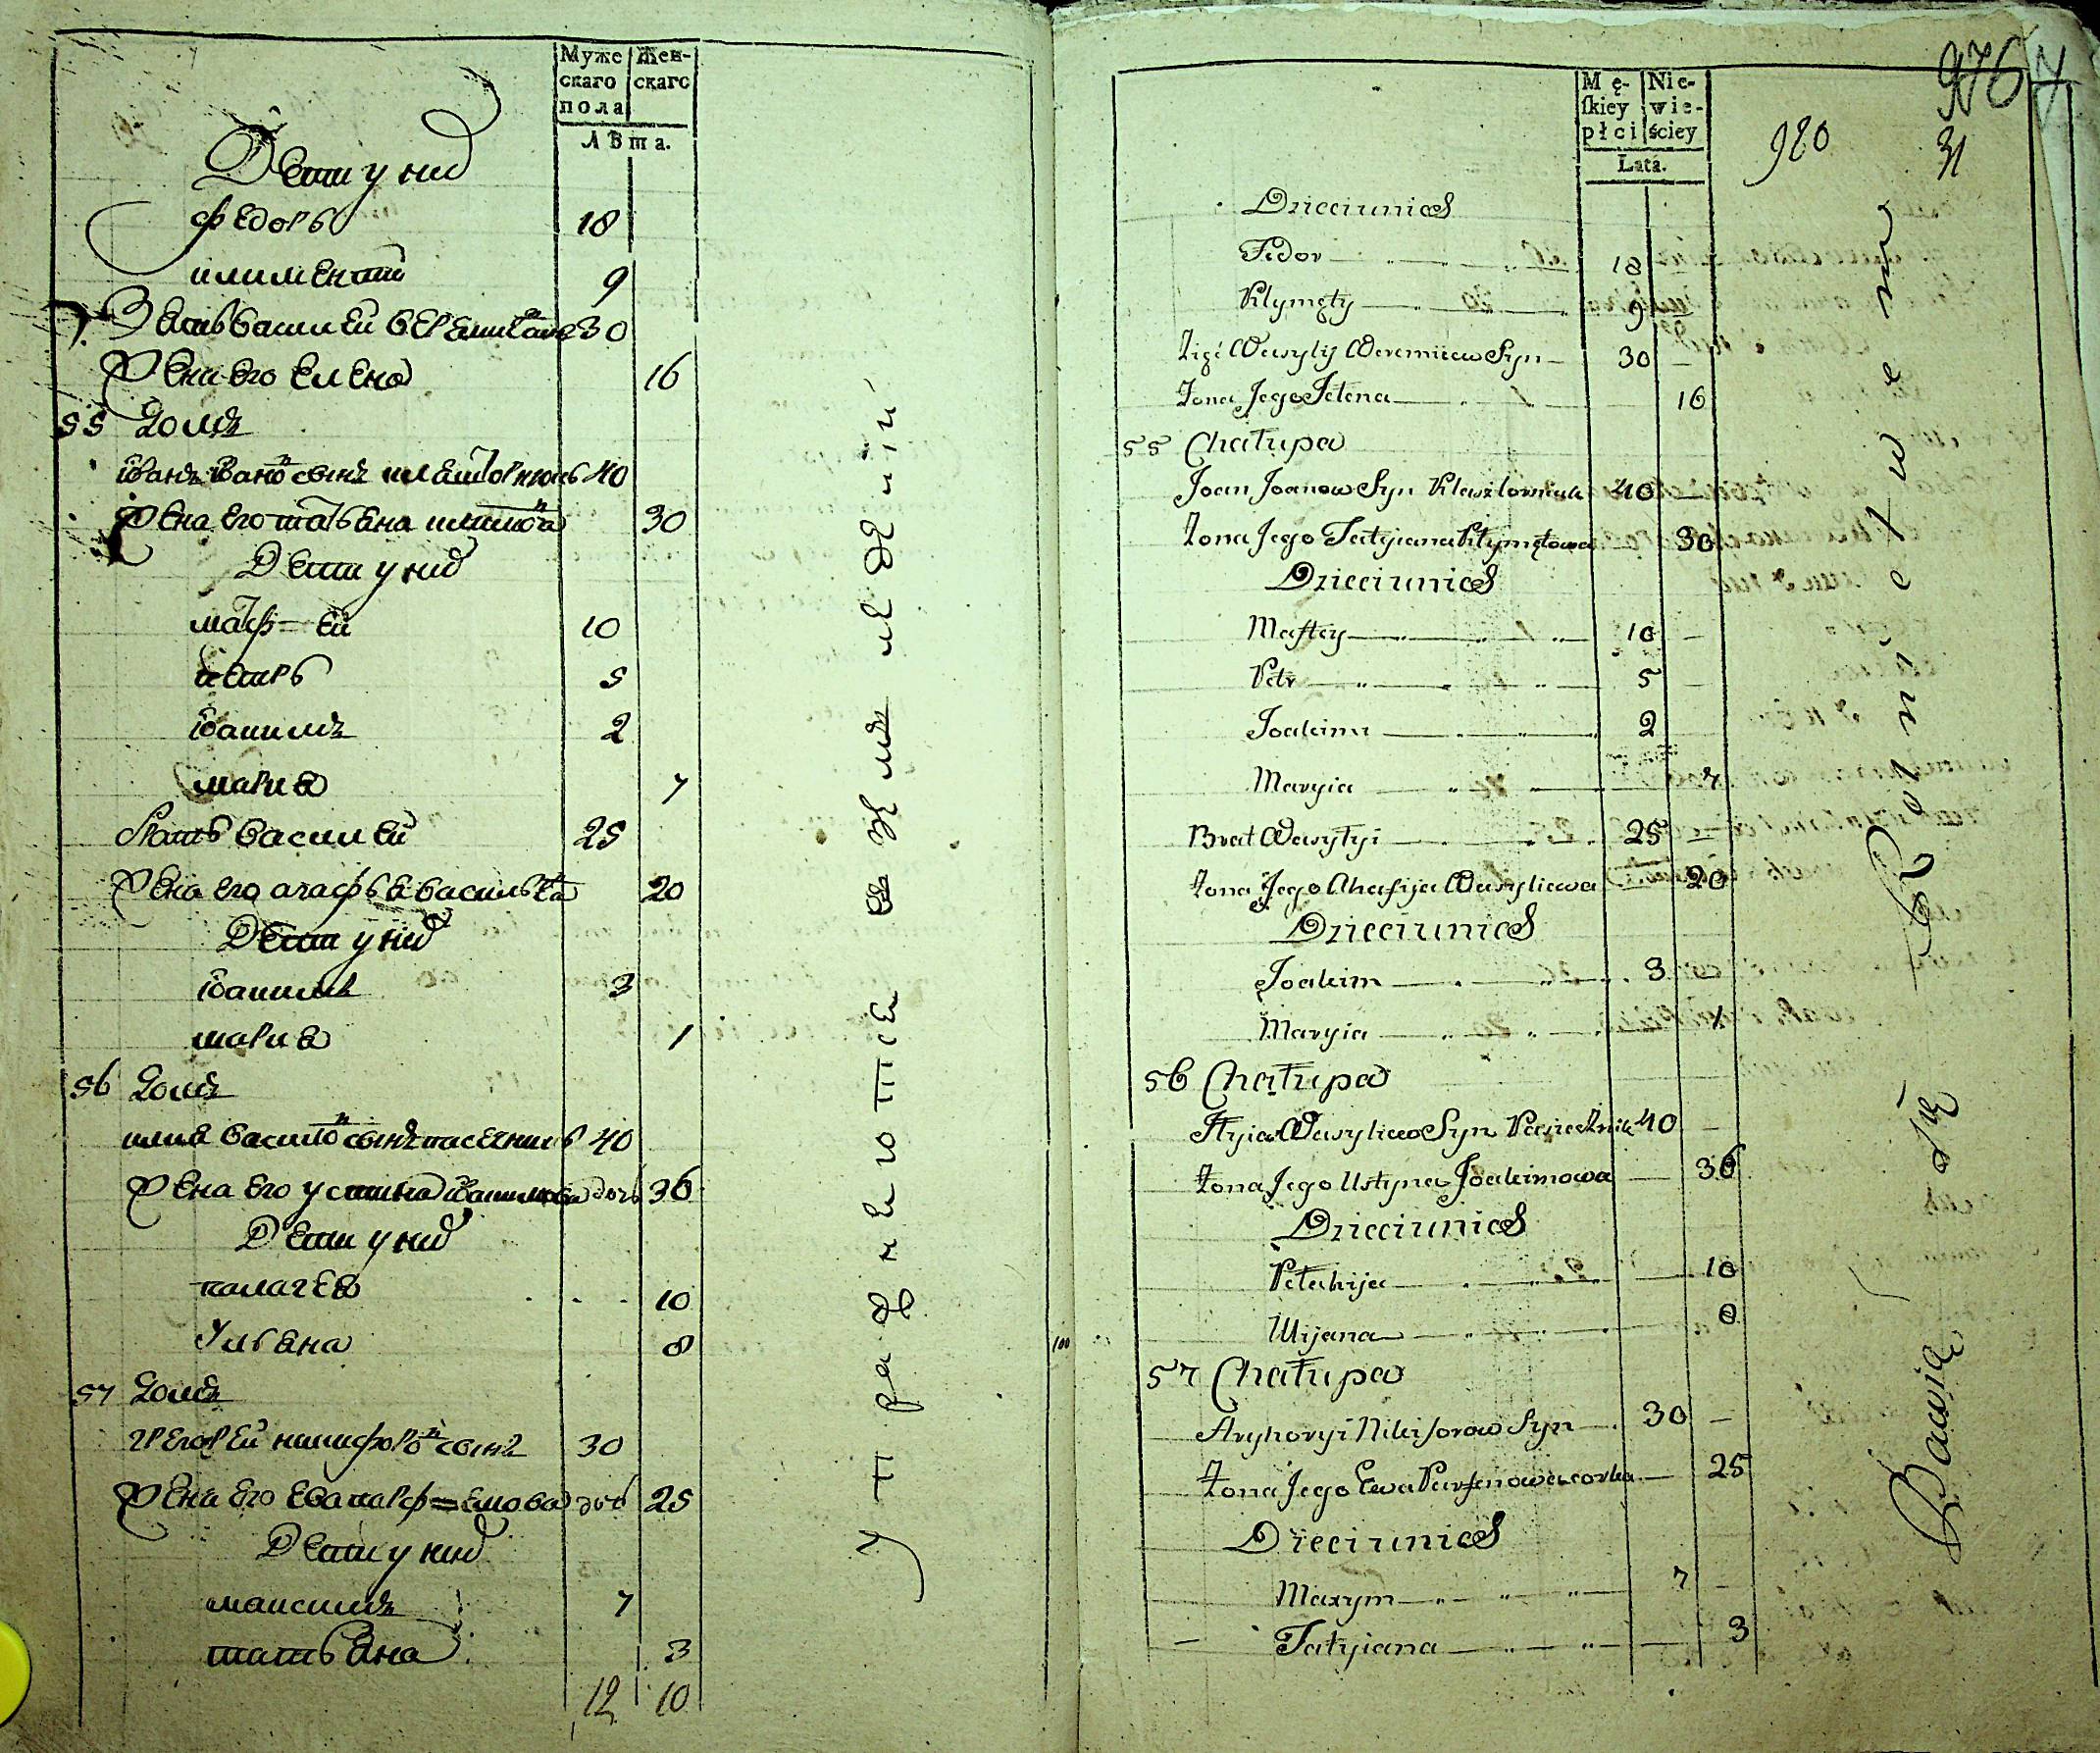 Муже Жен-
скаго скаго
пола
лѣта.
Дети у них
федоръ 18
климентии 9
Зеть василеи веремиеовъ 30
Жена его елена 16
55 домъ
іванъ івановъ сынъ клашторнюкъ 40
Жена его татьеана климова 30
Дети у них
матфеи 10
петръ 5
іоакимъ 2
мариа 7
брать василеи 25
Жена его агафьеа васильева 20
Дети у них
іоакимъ 3
мариа 1
56 домъ
илиа василевъ сынъ пасечникъ 40
Жена его устина іоакимова дочь 36
Дети у них
палагеа 10
Ульеана 8
57 домъ
грегореи никифоровъ сынъ 30
Жена его ева парфенова дочь 25
Дети у них
максимъ 7
татьеана 3
12 10
упражнеютсе въ земледелій
Mę- Nie-
skiey wie-
płci ściey
Lata.
976
920
31
Dzieci u nich
Fedor 18
Klymęty 9
Zięć Wasylij Weremiiew Syn 30
Żona Jego Jelena 16
55 Chałupa
Joan Joanow Syn Klasztorniuk 40
Żona Jego Tatyiana Klymętowa 30
Dzieci u nich
Maftey 10
Petr 5
Joakim 2
Maryia 7
Brat Wasylyi 25
Żona Jego Ahafija Wasyliewa 20
Dzieci u nich
Joakim 3
Maryia 1
56 Chałupa
Ilyia Wasyliew Syn Pasiecznik 40
Żona Jego Ustyna Joakimowa 36
Dzieci u nich
Pełahija 10
Ulijana 8
57 Chałupa
Aryhoryi Nikiforow Syn 30
Żona Jego Ewa Parfenowa corka 25
Dzieci u nich
Maxym 7
Tatyiana 3
Bawią Się Rolnictwem